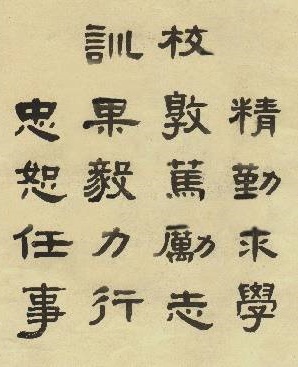 校訓
精勤求學
敦篤勵志
果毅力行
忠恕任事